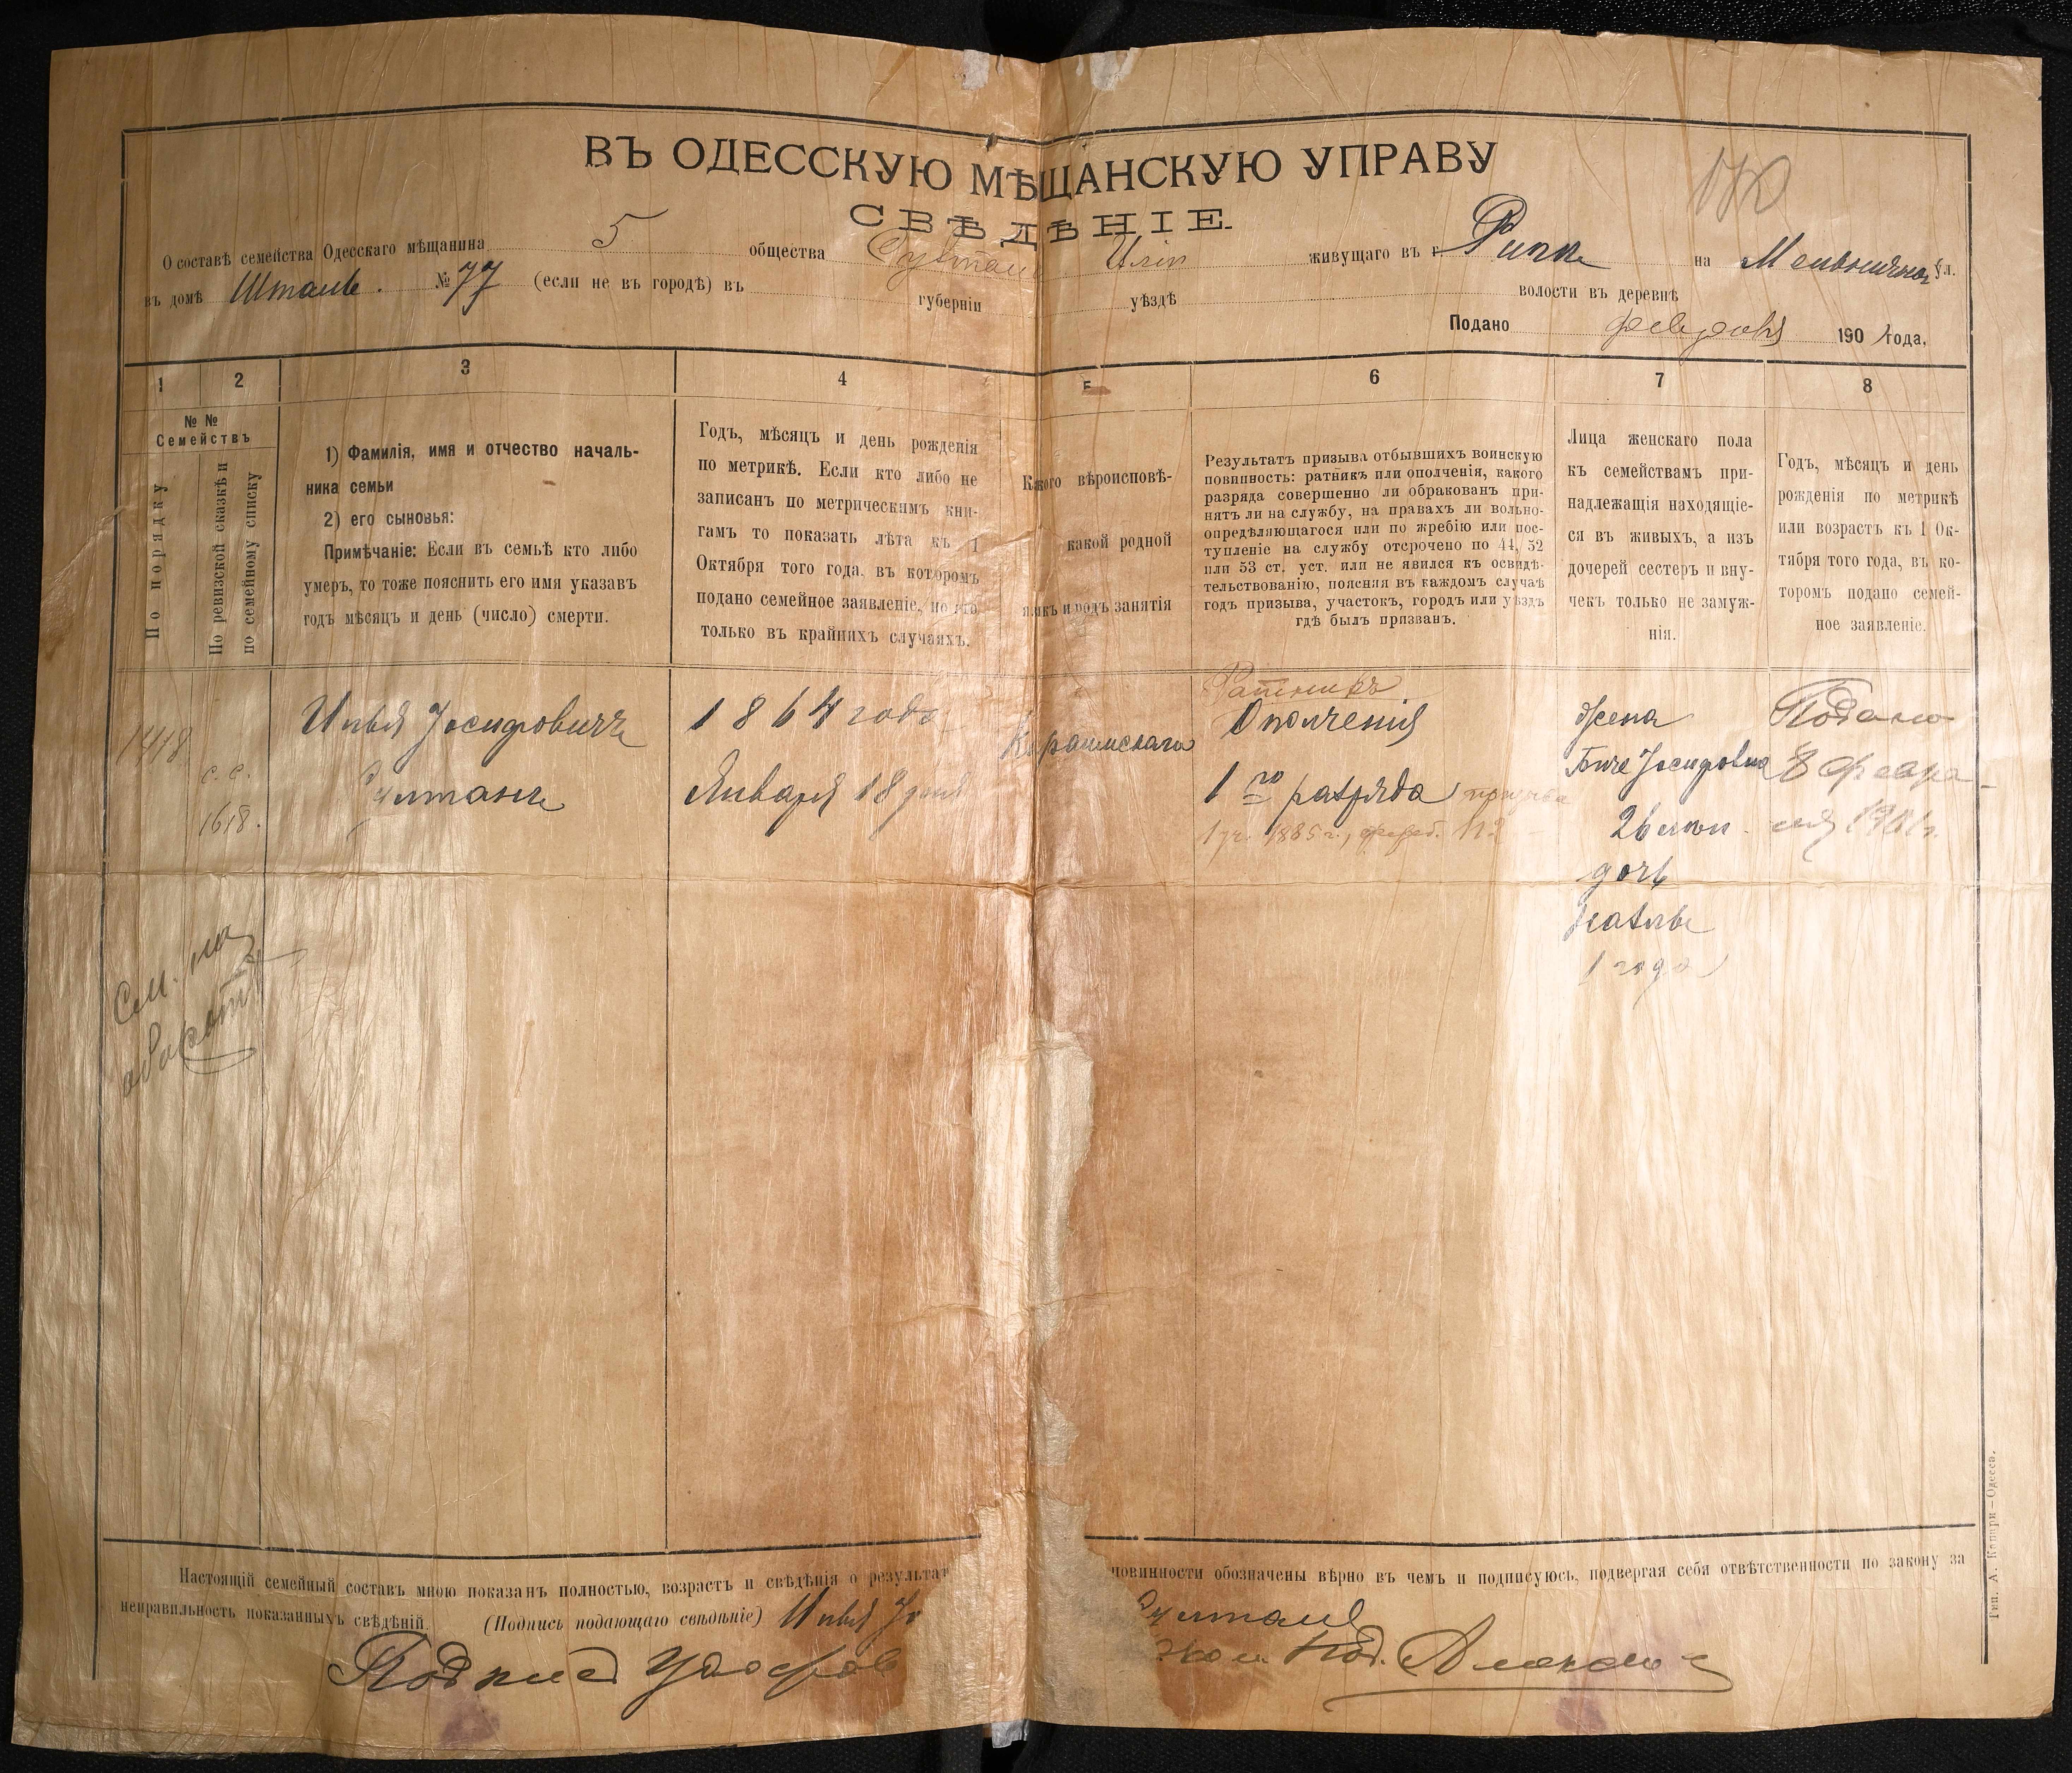 ВЪ ОДЕССКУЮ МѢЩАНСКУЮ УПРАВУ
СВѢДѢНІЕ.
О составѣ семейства Одесскаго мѣщанина 5 общества Султанъ Илія живущаго въ г. на Мельничной ул.
въ домѣ Шталь. № 77 (если не въ городѣ) въ губерніи уѣздѣ волости въ деревнѣ
Подано февраля 1901 года.
1 2 3 4 5 6 7 8
№ №
Семействъ
По порядку
По ревизской сказкѣ и
по семейному списку
1) Фамилія, имя и отчество началь-
ника семьи
2) его сыновья:
Примѣчаніе: Если въ семьѣ кто либо
умеръ, то тоже пояснить его имя указавъ
годъ мѣсяцъ и день (число) смерти.
Годъ, мѣсяцъ и день рожденія
по метрикѣ. Если кто либо не
записанъ по метрическимъ кни-
гамъ то показать лѣта къ 1
Октября того года, въ которомъ
подано семейное заявленіе, но это
только въ крайнихъ случаяхъ.
Какого вѣроисповѣ-
какой родной
языкъ и родъ занятія
Результатъ призыва отбывшихъ воинскую
повинность: ратникъ или ополченія, какого
разряда совершенно ли обракованъ при-
нятъ ли на службу, на правахъ ли вольно-
опредѣляющагося или по жребію или пос-
тупленіе на службу отсрочено по 44, 52
или 53 ст. уст. или не явился къ освидѣ-
тельствованію, поясняя въ каждомъ случаѣ
годъ призыва, участокъ, городъ или уѣздъ
гдѣ былъ призванъ.
Лица женскаго пола
къ семействамъ при-
надлежащія находящіе-
ся въ живыхъ, а изъ
дочерей сестеръ и вну-
чекъ только не замуж-
нія.
Годъ, мѣсяцъ и день
рожденія по метрикѣ
или возрастъ къ 1 Ок-
тября того года, въ ко-
торомъ подано семей-
ное заявленіе.
1418
с. с.
1618.
Илья Іосифовичъ
Султанъ
1864 года
Января 18 дня
Караимскаго
Ратникъ
Ополченія
1го разряда призыва
1 уч. 1885 г., жреб. №
жена
Биче Іосифовна
26 лѣтъ
дочь
1 года
Подано
8 февра-
ля 1901 г.
См. на
оборотѣ
Настоящій семейный составъ мною показанъ полностью, возрастъ и свѣдѣнія о результа повинности обозначены вѣрно въ чемъ и подписуюсь, подвергая себя отвѣтственности по закону за
неправильность показанныхъ свѣдѣній. (Подпись подающаго свѣдѣніе) Илья Іо Султанъ
Подпись
Тип. А. Копчри—Одесса.